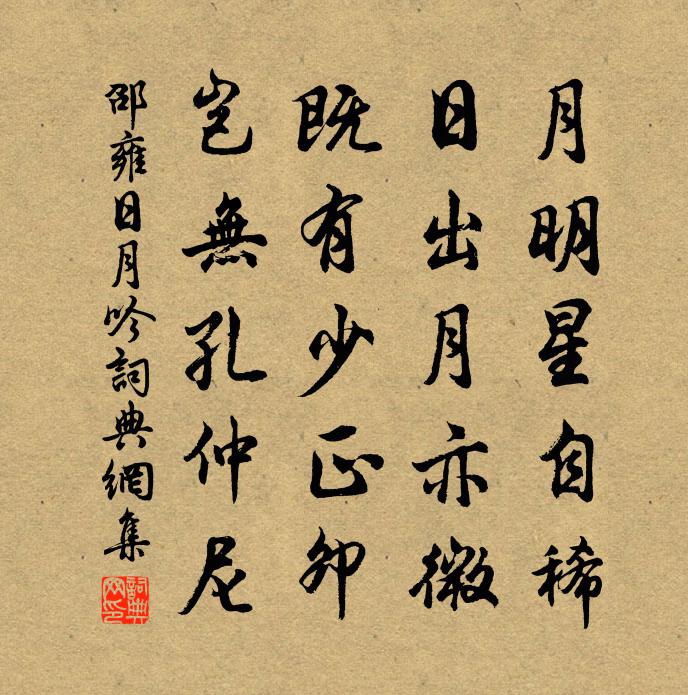 月明星自稀
日出月亦微
既有少正卯
豈無孔仲尼
邵雍日月吟詞典網集
詞典网印